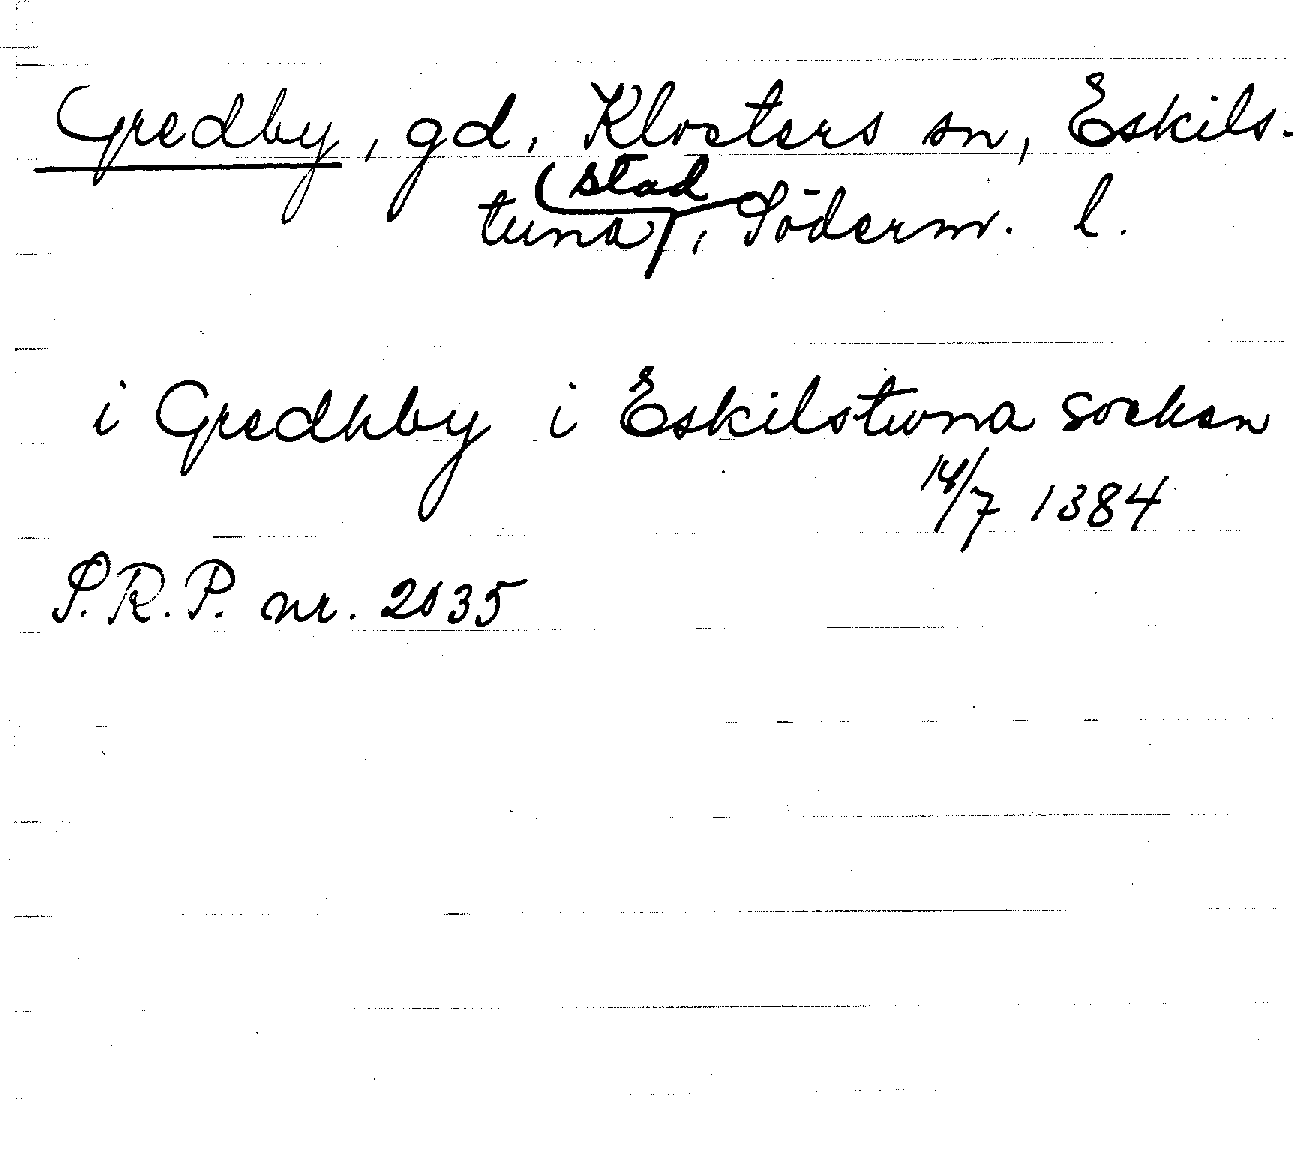 Gredby, gd, Klosters sn, Eskils-
tuna stad, Söderm. l.
i Gredhby i Eskilstuna socken
14/7 1384
S.R.P. nr. 2035